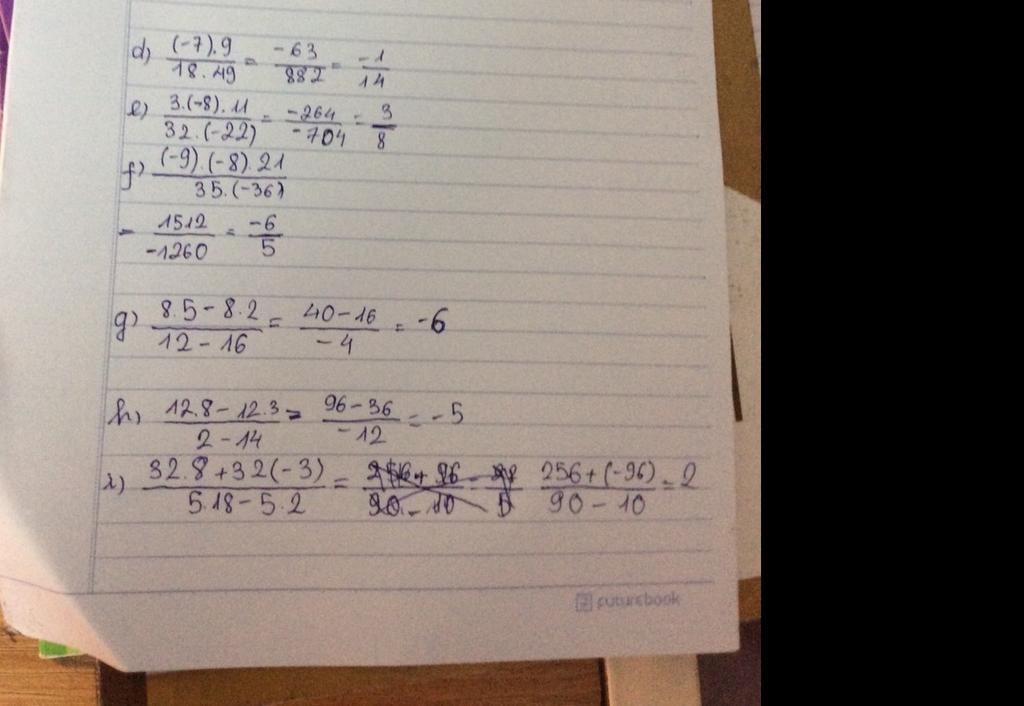 d) (-7).9 / 18.49 = -63 / 882 = -1 / 14
e) 3.(-8).11 / 32.(-22) = -264 / -704 = 3 / 8
f) (-9).(-8).21 / 35.(-36)
= 1512 / -1260 = -6 / 5
g) 8.5-8.2 / 12-16 = 40-16 / -4 = -6
h) 12.8-12.3 / 2-14 = 96-36 / -12 = -5
i) 32.8+32(-3) / 5.18-5.2 = 256+(-96) / 90-10 = 2
futurebook